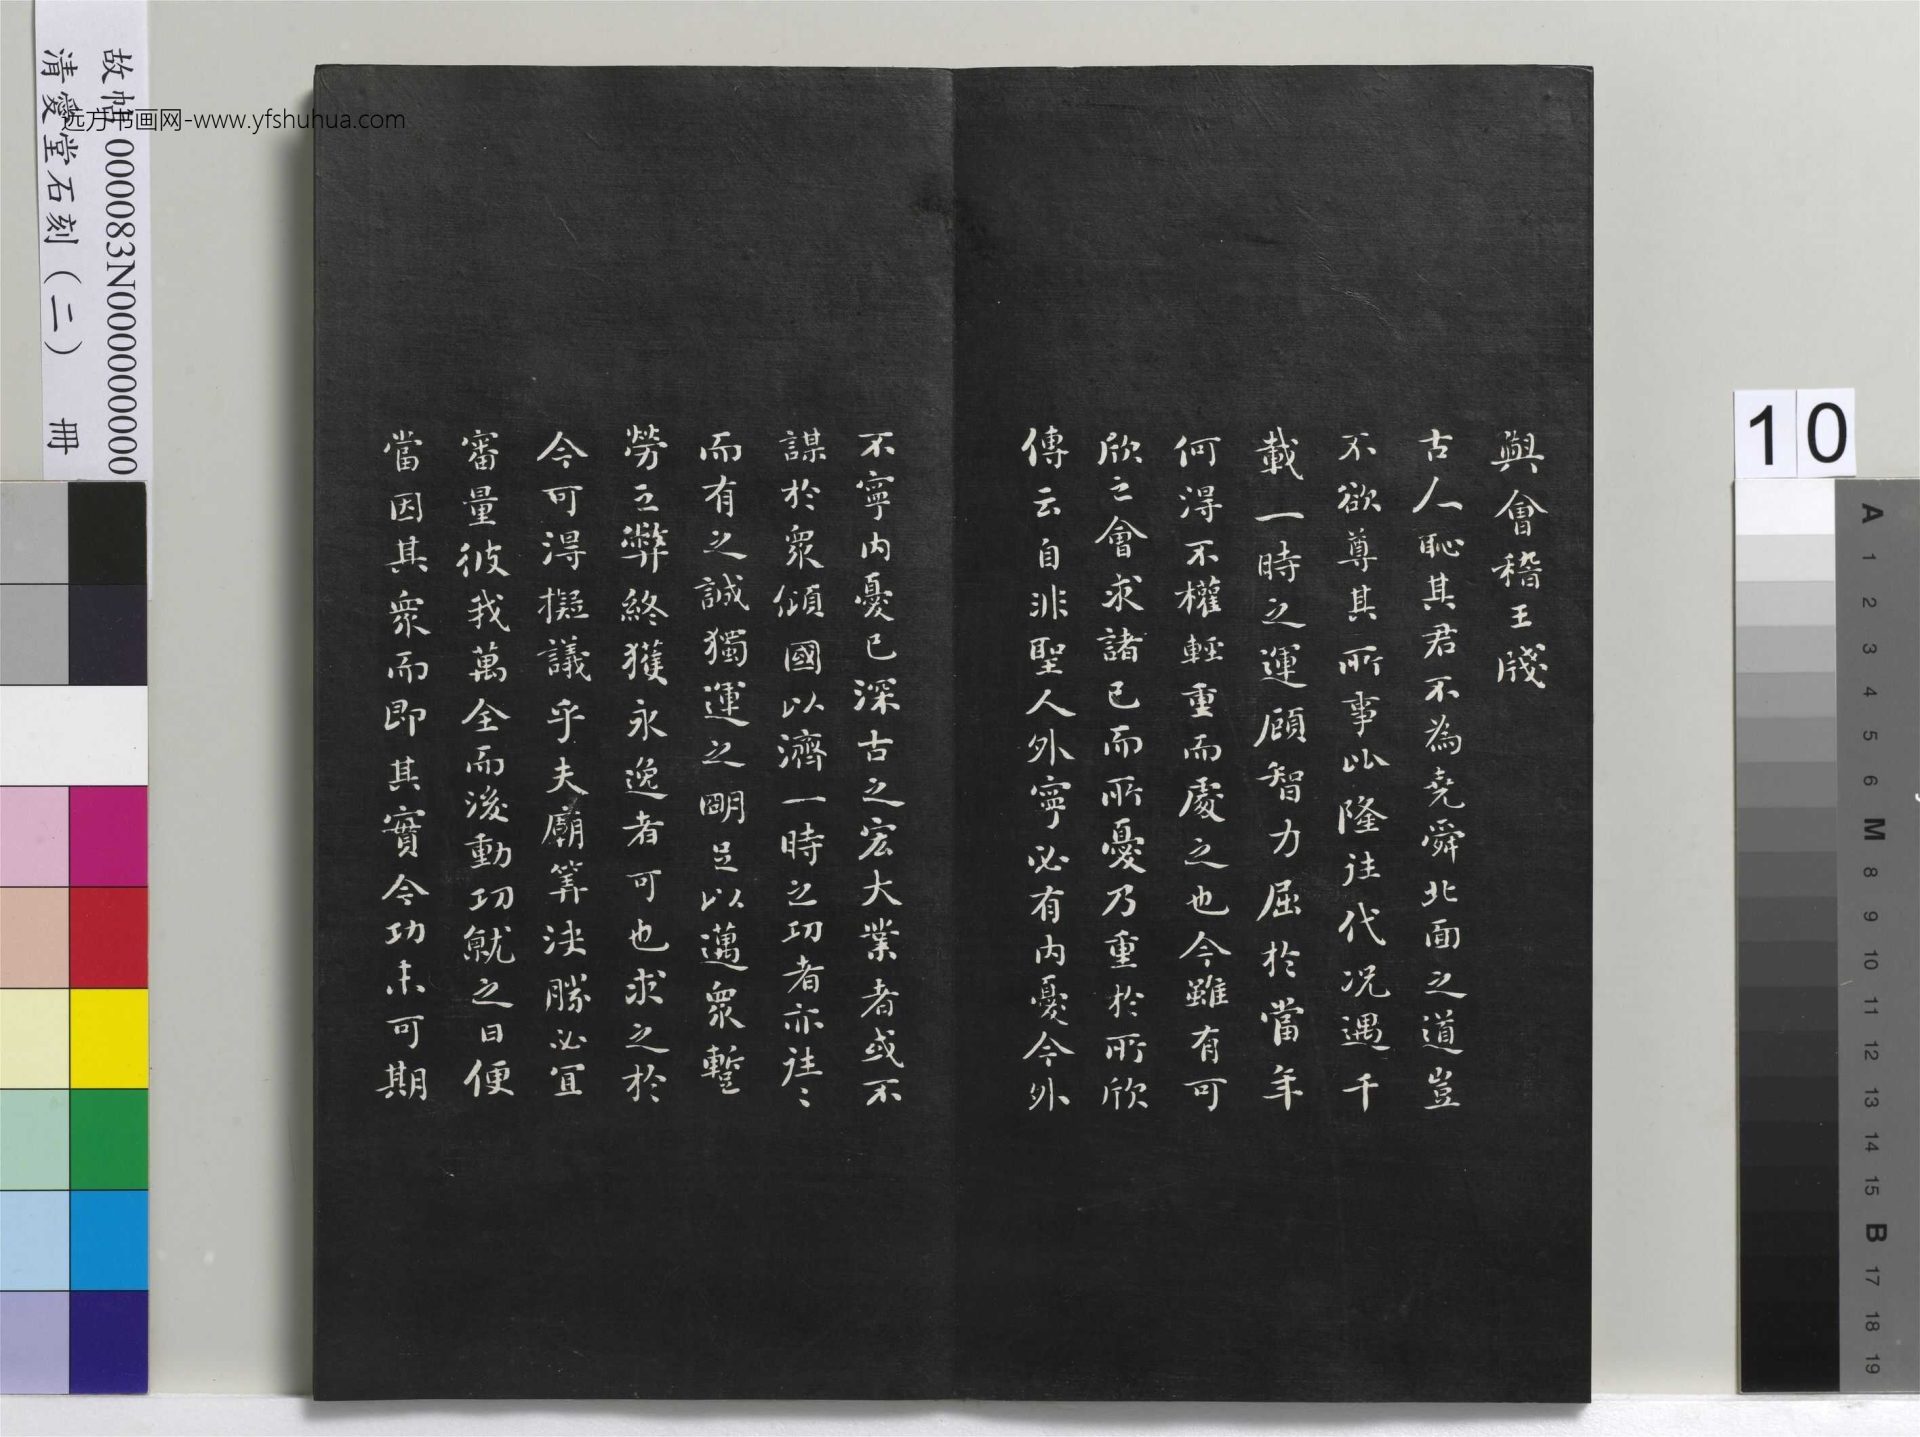 與會稽王牋
古人恥其君不為堯舜北面之道豈
不欲尊其所事比隆往代況遇千
載一時之運顧智力屈於當年
何得不權輕重而處之也今雖有可
欣之會求諸己而所憂乃重於所欣
傳云自非聖人外寧必有内憂今外
不寧内憂已深古之宏大業者或不
謀於眾傾國以濟一時之功者亦往〻
而有之誠獨運之明足以邁眾蹔
勞之弊終獲永逸者可也求之於
今可得擬議乎夫廟筭決勝必宜
審量彼我萬全而後動功就之日便
當因其眾而即其實今功未可期
故帖000083N000000000
清愛堂石刻(二) 冊
远方书画网-www.yfshuhua.com
10
A
1
2
3
4
5
6
M
8
9
10
11
12
13
14
15
B
17
18
19